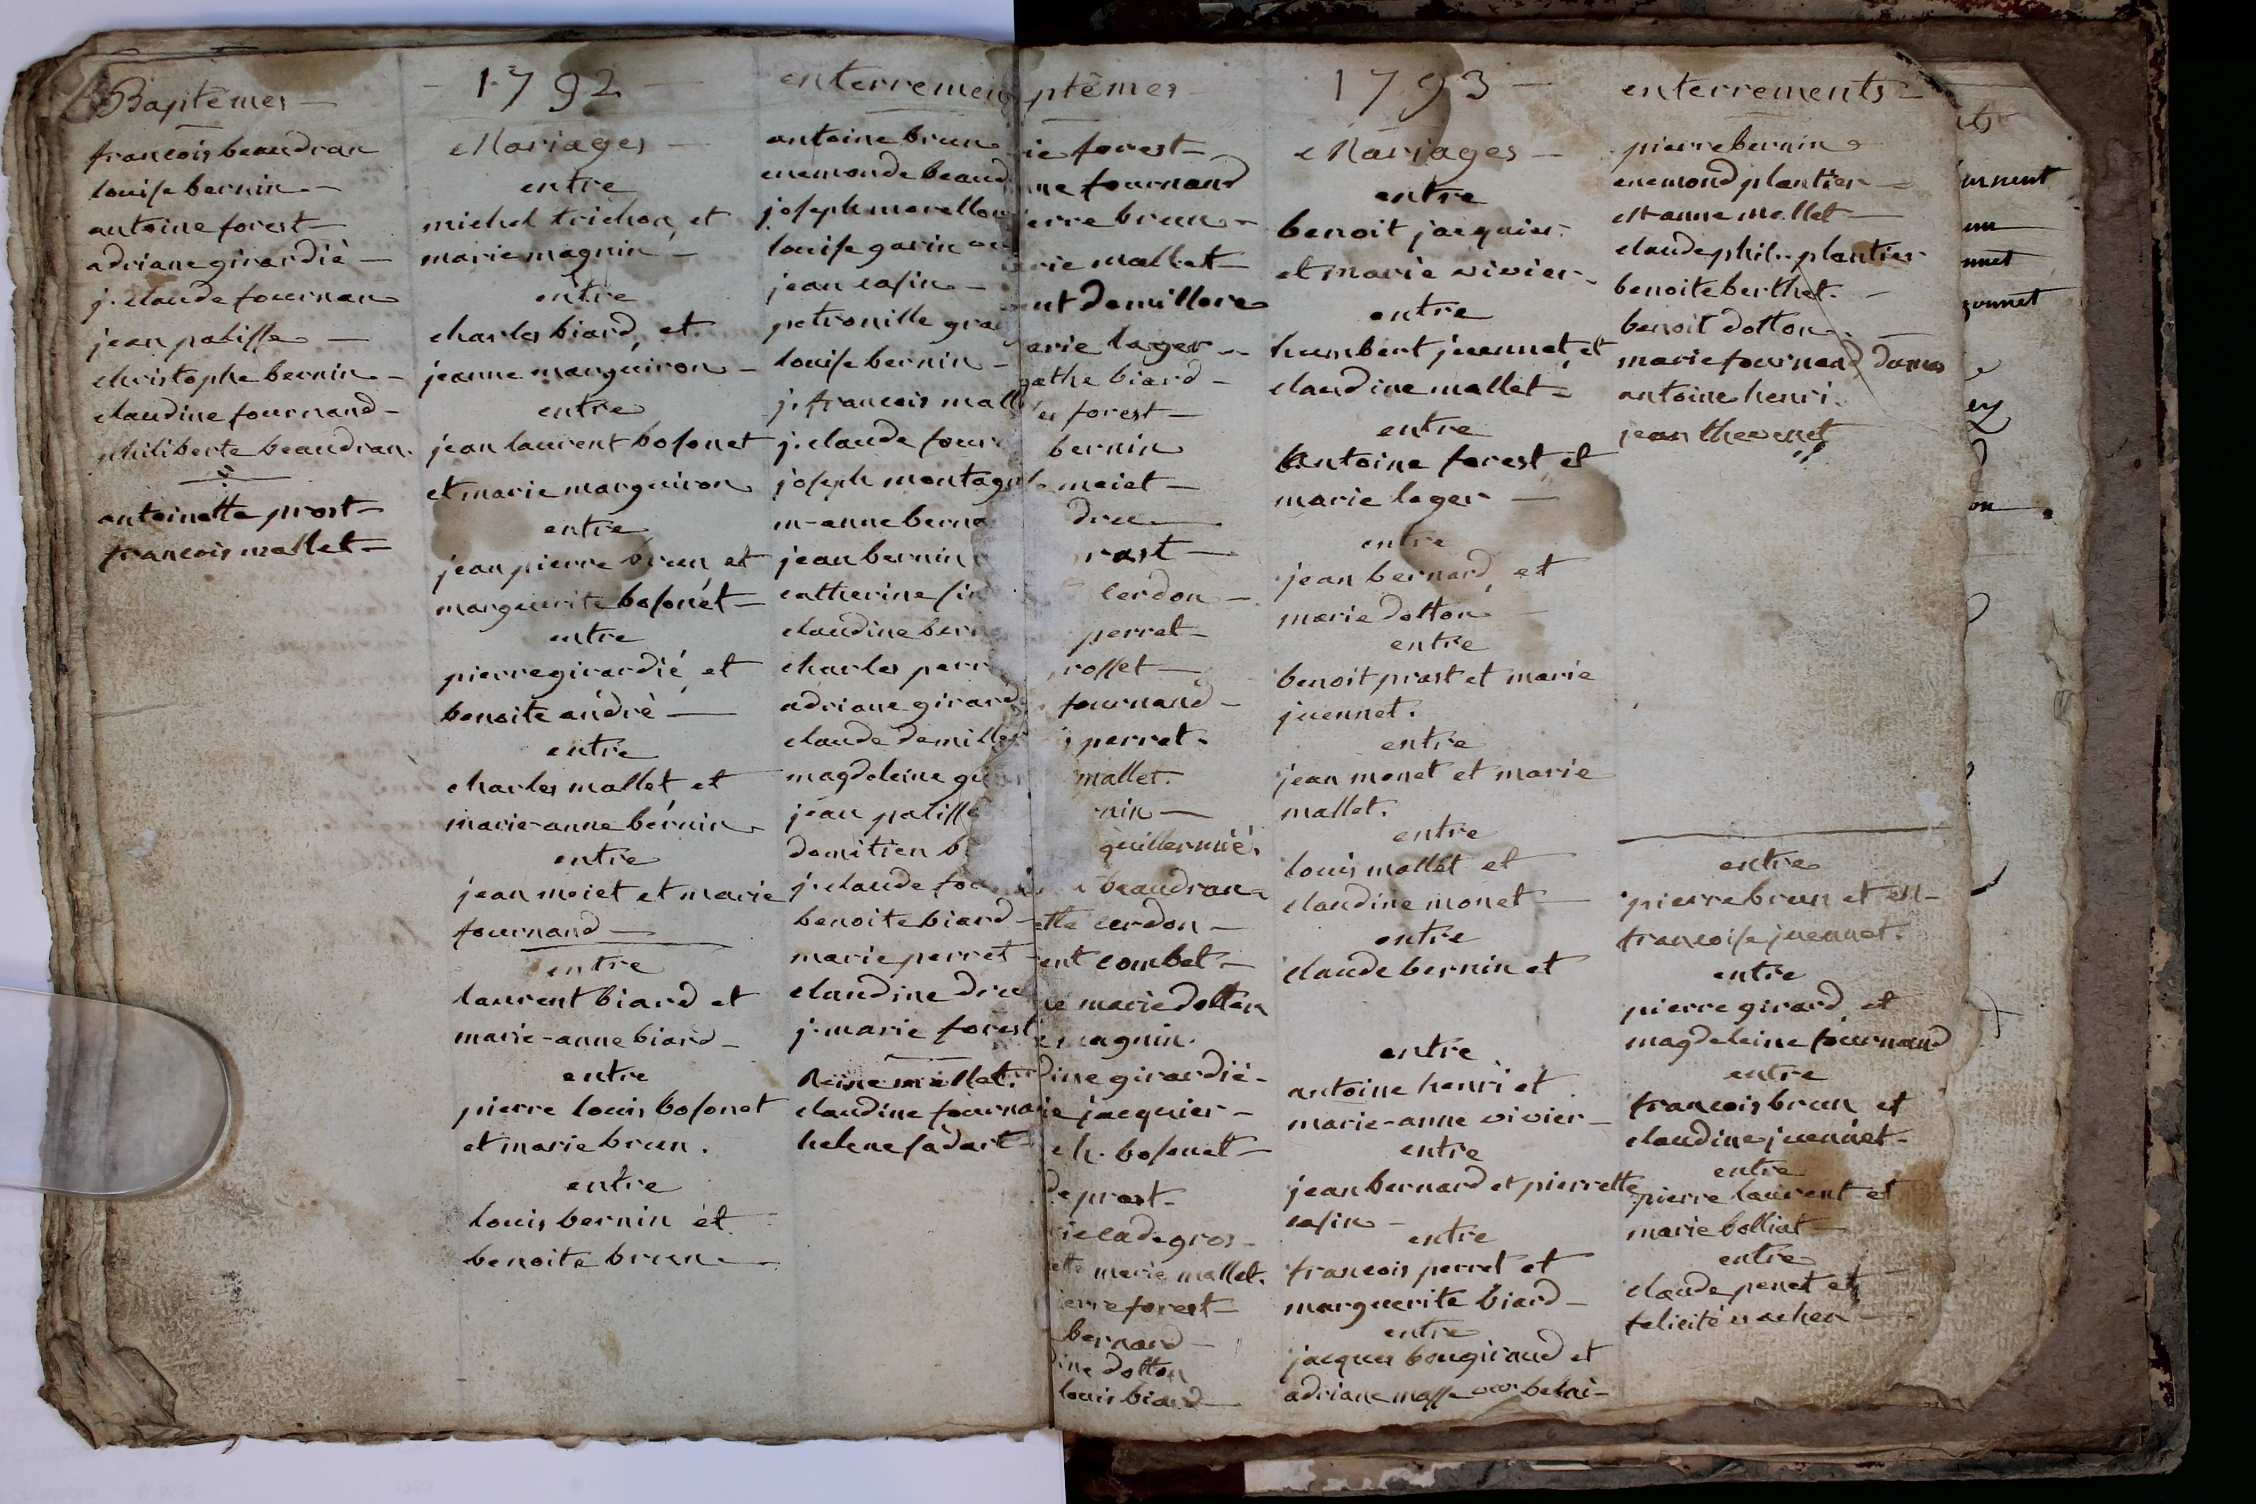 Baptêmes —
francois beaudran
louise bernin —
antoine forest —
adriane girardié —
j. claude fournan
jean palisse —
christophe bernin —
claudine fournand —
philiberte beaudran.
antoinette prost —
francois mallet —
— 1792 —
Mariages —
entre
michel trichon, et
marie magnin —
entre
charles biard, et
jeanne marguiron —
entre
jean laurent bosonet
et marie marguiron
entre
jean pierre brun et
marguerite bosonét —
entre
pierre girardié et
benoite andrè —
entre
charles mallet et
marie-anne bérnin
entre
jean moiet et marie
fournand —
entre
laurent biard et
marie-anne biard —
entre
pierre louis bosonet
et marie brun.
entre
louis bernin et
benoite brun —
enterremen
antoine brun
enemonde beaud
joseph morellon
louise garin
jean casin —
petronille gra
louise bernin —
j. francois mall
j. claude four
joseph montag
m-anne berna
jean bernin
catherine
claudine bern
charles perr
adriane girard
claude demille
magdeleine
jean palisse
domitien b
j. claude fou
benoite biard —
marie perret —
claudine dru
j. marie forest
Reine millet.
claudine fourna
helene sadart —
ptêmes —
rie forest —
ne fournand
ierre brun —
rie mallet —
ent demillere
arie lager —
gathe biard —
forest —
bernin
moiet —
dru —
rost —
cerdon —
perret —
rosset —
fournand —
perret.
mallet.
nin —
guillermié.
beaudran
tte cerdon —
ent combet —
marie dotton
magnin.
dine girardié —
jacquier —
ch. bosonet —
de prost —
rie cadegros —
ette marie mallet.
ierre forest —
bernard —
dine dotton
louis biard —
1793 —
Mariages —
entre
benoit jacquier
et marie vivier —
entre
humbert juennet, et
claudine mallet —
entre
Antoine forest et
marie lager —
entre
jean bernard, et
marie dotton —
entre
benoit prost et marie
juennet.
entre
jean monet et marie
mallet.
entre
louis mallet et
claudine monet —
entre
claude bernin et
entre
antoine henri et
marie-anne vivier —
entre
jean bernard et pierrette
casin —
entre
francois perret et
marguerite biard —
entre
jacques bougiraud et
adriane masse belai —
enterrements —
pierre bernin
enemond plantier —
anne mallet —
claude phil. plantier
benoite berthet. —
benoit dotton —
marie fournand
antoine henri.
jean thevenet
entre
pierre brun et
francoise juennet.
entre
pierre girard, et
magdeleine fournand
entre
francois brun et
claudine juennet —
entre
pierre laurent et
marie bolliat —
entre
claude penet et
felicité